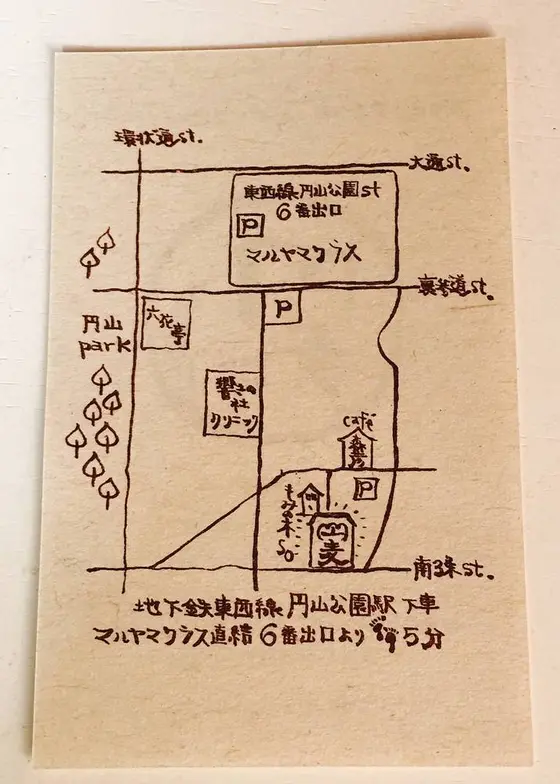 環状通st.
大通st.
東西線円山公園st
6番出口
P
マルヤマクラス
裏参道st.
円山
park
六花亭
P
響きの
杜
クリニック
café
森彦
P
もみの木
SO
麦
南3条st.
地下鉄東西線 円山公園駅 下車
マルヤマクラス直結 6番出口より 5分